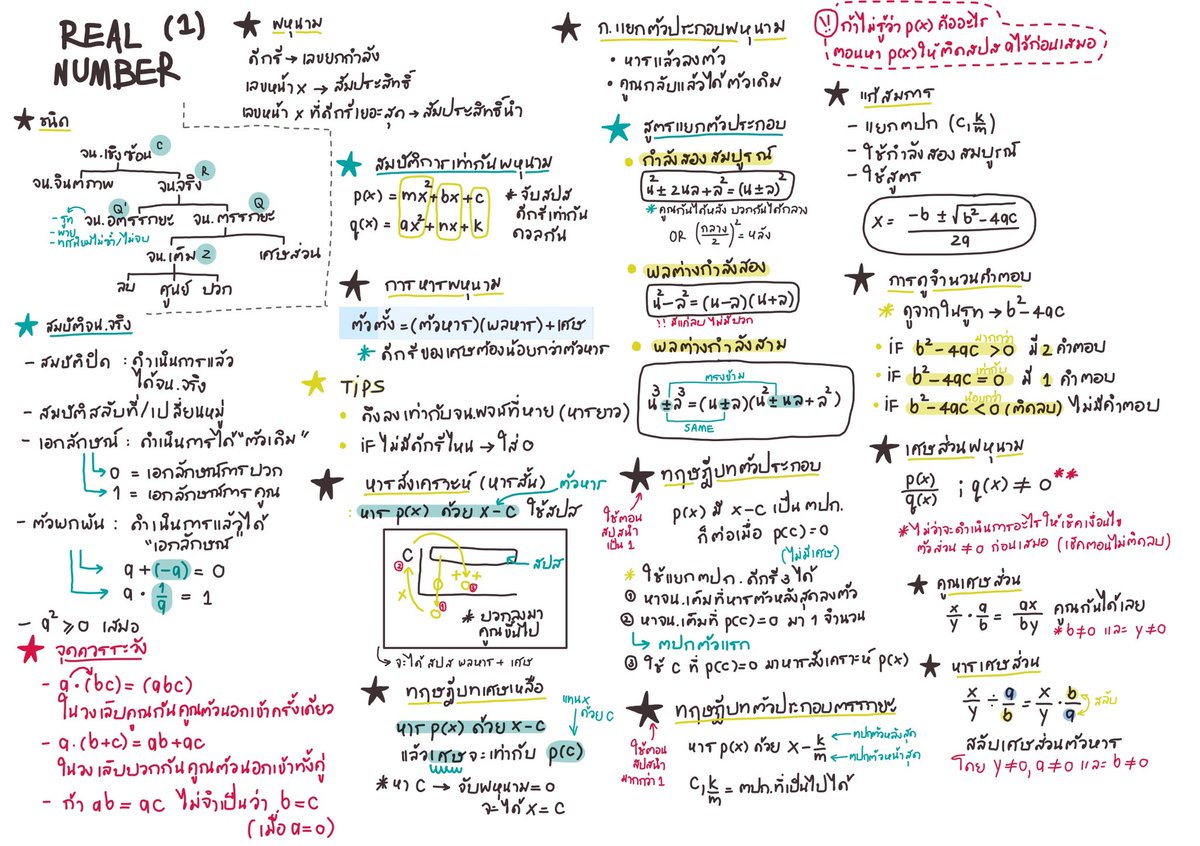 REAL (1)
NUMBER
ชนิด
จน.เชิงซ้อน C
จน.จินตภาพ
จน.จริง R
Q' จน.อตรรกยะ
จน.ตรรกยะ Q
- รูท
- พาย
- ทศนิยมไม่ซ้ำ/ไม่จบ
จน.เต็ม Z
เศษส่วน
ลบ ศูนย์ บวก
สมบัติจน.จริง
- สมบัติปิด : ดำเนินการแล้ว
ได้จน.จริง
- สมบัติสลับที่/เปลี่ยนหมู่
- เอกลักษณ์ : ดำเนินการได้ "ตัวเดิม"
0 = เอกลักษณ์การบวก
1 = เอกลักษณ์การคูณ
- ตัวผกผัน : ดำเนินการแล้วได้
"เอกลักษณ์"
a + (-a) = 0
a · 1/a = 1
- a² ≥ 0 เสมอ
จุดควรระวัง
- a·(bc) = (abc)
ในวงเล็บคูณกันคูณตัวนอกเข้าครั้งเดียว
- a·(b+c) = ab+ac
ในวงเล็บบวกกันคูณตัวนอกเข้าทั้งคู่
- ถ้า ab = ac ไม่จำเป็นว่า b = c
(เมื่อ a = 0)
พหุนาม
ดีกรี → เลขยกกำลัง
เลขหน้า x → สัมประสิทธิ์
เลขหน้า x ที่ดีกรีเยอะสุด → สัมประสิทธิ์นำ
สมบัติการเท่ากันพหุนาม
p(x) = mx² + bx + c
q(x) = ax² + nx + k
* จับสปส
ดีกรีเท่ากัน
ดอลกัน
การหารพหุนาม
ตัวตั้ง = (ตัวหาร)(ผลหาร) + เศษ
* ดีกรีของเศษต้องน้อยกว่าตัวหาร
TiPS
• ดึงลงเท่ากับจน.พจน์ที่หาย (หารยาว)
• iF ไม่มีดีกรีไหน → ใส่ 0
หารสังเคราะห์ (หารสั้น) ตัวหาร
: หาร p(x) ด้วย x-c ใช้สปส
C
สปส
② ① ②
0 0 0
x + +
* บวกลงมา
คูณขึ้นไป
จะได้ สปส ผลหาร + เศษ
ทฤษฎีบทเศษเหลือ
หาร p(x) ด้วย x-c
แทน x
ด้วย c
แล้วเศษจะเท่ากับ p(c)
* หา c → จับพหุนาม = 0
จะได้ x = c
ก.แยกตัวประกอบพหุนาม
• หารแล้วลงตัว
• คูณกลับแล้วได้ตัวเดิม
สูตรแยกตัวประกอบ
• กำลังสองสมบูรณ์
น² ± 2นล + ล² = (น ± ล)²
* คูณกันได้หลัง บวกกันได้กลาง
OR (กลาง/2)² = หลัง
• ผลต่างกำลังสอง
น² - ล² = (น-ล)(น+ล)
!! มีแค่ลบ ไม่มีบวก
• ผลต่างกำลังสาม
ตรงข้าม
น³ ± ล³ = (น ± ล)(น² ± นล + ล²)
SAME
ทฤษฎีบทตัวประกอบ
ใช้ตอน
สปสนำ
เป็น 1
p(x) มี x-c เป็น ตปก.
ก็ต่อเมื่อ p(c) = 0
(ไม่มีเศษ)
* ใช้แยกตปก. ดีกรี 3 ได้
① หาจน.เต็มที่หารตัวหลังสุดลงตัว
② หาจน.เต็มที่ p(c) = 0 มา 1 จำนวน
ตปกตัวแรก
③ ใช้ c ที่ p(c) = 0 มาหารสังเคราะห์ p(x)
ทฤษฎีบทตัวประกอบตรรกยะ
ใช้ตอน
สปสนำ
มากกว่า 1
หาร p(x) ด้วย x - k/m
ตปกตัวหลังสุด
ตปกตัวหน้าสุด
c, k/m = ตปก.ที่เป็นไปได้
!! ถ้าไม่รู้ว่า p(x) คืออะไร
ตอนหา p(x) ให้ติดสปส a ไว้ก่อนเสมอ
แก้สมการ
- แยกตปก (c, k/m)
- ใช้กำลังสองสมบูรณ์
- ใช้สูตร
x = -b ± √b² - 4ac / 2a
การดูจำนวนคำตอบ
* ดูจากในรูท → b² - 4ac
มากกว่า
• iF b² - 4ac > 0 มี 2 คำตอบ
เท่ากับ
• iF b² - 4ac = 0 มี 1 คำตอบ
น้อยกว่า
• iF b² - 4ac < 0 (ติดลบ) ไม่มีคำตอบ
เศษส่วนพหุนาม
p(x)/q(x) ; q(x) ≠ 0 **
* ไม่ว่าจะดำเนินการอะไรให้เช็คเงื่อนไข
ตัวส่วน ≠ 0 ก่อนเสมอ (เช็คตอนไม่ติดลบ)
คูณเศษส่วน
x/y · a/b = ax/by คูณกันได้เลย
* b≠0 และ y≠0
หารเศษส่วน
x/y ÷ a/b = x/y · b/a สลับ
สลับเศษส่วนตัวหาร
โดย y≠0, a≠0 และ b≠0